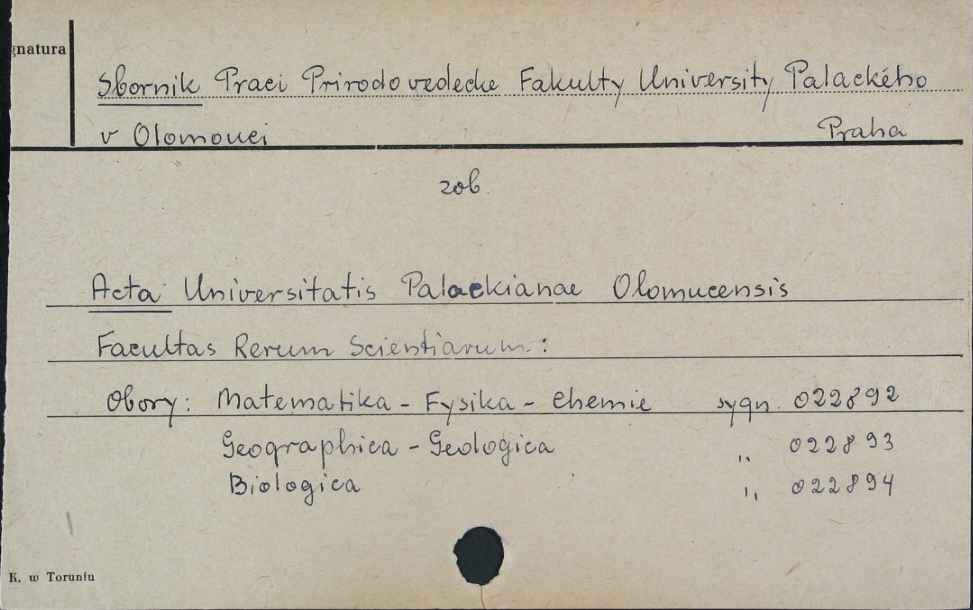 gnatura
Sbornik Praci Prirodovedecke Fakulty University Palackého
v Olomouci Praha
zob.
Acta Universitatis Palackianae Olomucensis
Facultas Rerum Scientiarum:
Obory: Matematika - Fysika - Chemie sygn. 022892
Geographica - Geologica ,, 022893
Biologica ,, 022894
K. w Toruniu